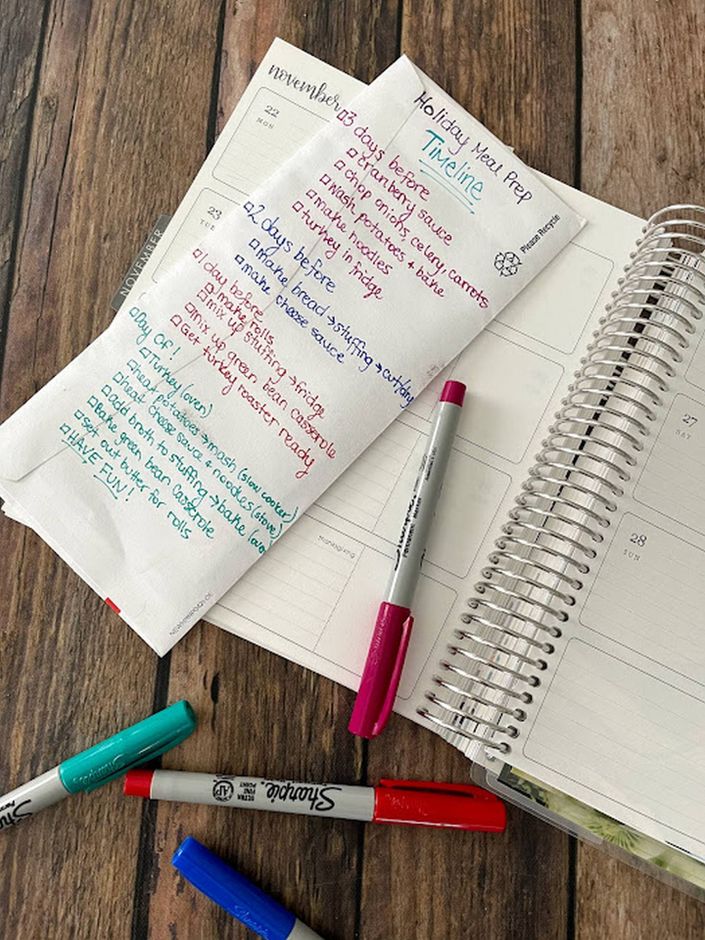 november
22
MON
23
TUE
NOVEMBER
Holiday Meal Prep
Timeline
Please Recycle
□3 days before
□cranberry sauce
□chop onions, celery, carrots
□wash potatoes + bake
□make noodles
□turkey in fridge
□2 days before
□make bread → stuffing → cut/dry
□make cheese sauce
□1 day before
□make rolls
□mix up stuffing → fridge
□Mix up green bean casserole
□Get turkey roaster ready
□Day of!
□Turkey (oven)
□heat potatoes → mash (slow cooker)
□heat cheese sauce + noodles (stove)
□add broth to stuffing → bake (oven
□Bake green bean casserole
□set out butter for rolls
□HAVE FUN!
thanksgiving
27
SAT
28
SUN
Sharpie
ULTRA FINE POINT
AP
Sharpie